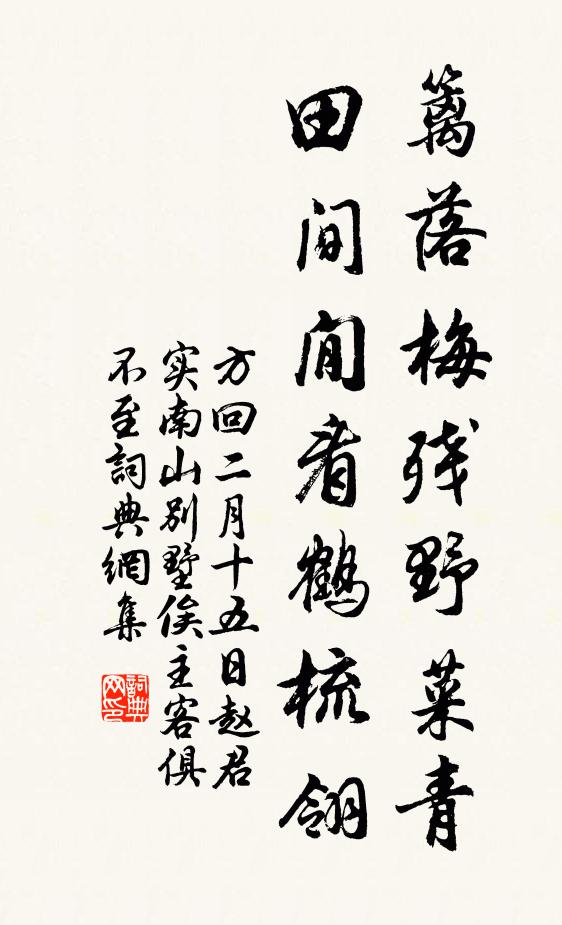 篱落梅残野菜青
田间闲看鶴梳翎
方回二月十五日赵君
实南山别墅俟主客俱
不至詞典網集
詞典网印